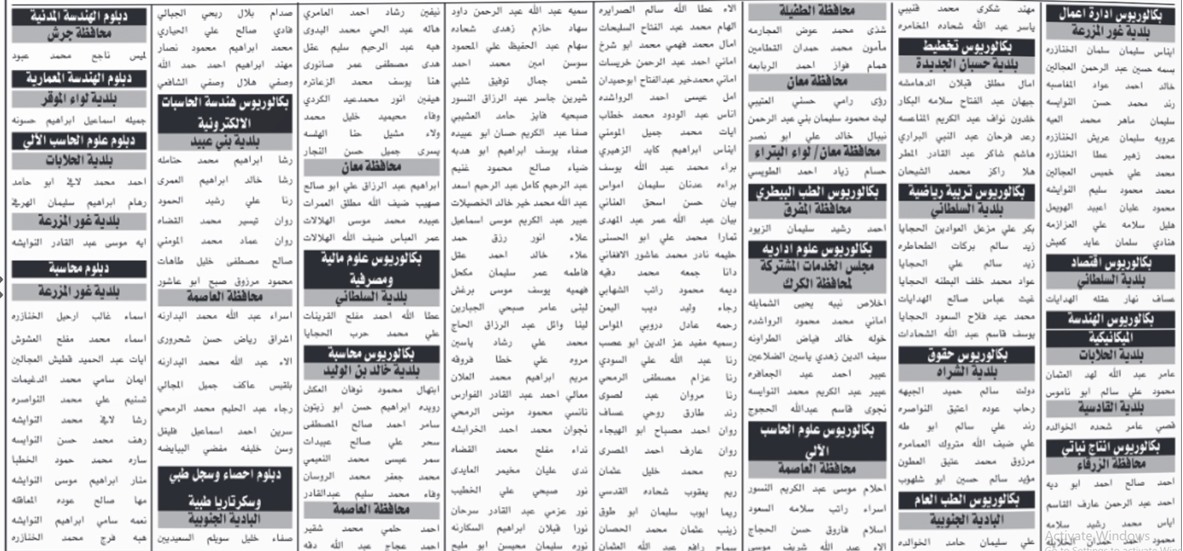 بكالوريوس ادارة اعمال
بلدية غور المزرعة
ايناس سليمان سلمان الخنازره
بسمه حسين عبد الرحمن المجالين
خالد احمد عواد المغاصبه
رند محمد حسن النوايسه
سليمان ماهر محمد العيه
عروبه سليمان عريش الخنازره
محمد زهير عطا الخنازره
محمد علي خميس المجالين
محمد محمود سليم النوايشه
محمود عليان اعبيد الهويمل
هليل سلامه علي العزازمه
هنادي سلمان عايد كعيش
بكالوريوس اقتصاد
بلدية السلطاني
عساف نهار عقله الهدايات
بكالوريوس الهندسة
الميكانيكية
بلدية الحلابات
عامر عبد الله لهد العثمان
محمود علي سالم ابو ناموس
بلدية القادسية
قصي عامر شحده الخوالده
بكالوريوس انتاج نباتي
محافظة الزرقاء
احمد صالح احمد ابو ديه
احمد عبد الرحمن عارف القاسم
اياس محمد رشيد سلامه
مهند شكري محمد قبيبي
ياسر عبد الله شحاده المخامره
بكالوريوس تخطيط
بلدية حسبان الجديدة
امال مطلق قبلان الدهامشه
جيهان عبد الفتاح سلامه البكار
خلدون نواف عبد الكريم المناعسه
رعد فرحان عبد النبي البراري
هاشم شاكر عبد القادر المطر
هلا راكز محمد الشيحان
بكالوريوس تربية رياضية
بلدية السلطاني
بكر علي مزعل العوادين الحجايا
زيد سالم بركات الطحاطره
زيد سالم علي الحجايا
عواد محمد خلف البطنه الحجايا
غيث عباس صالح الهدايات
محمد عيد فلاح السعود الحجايا
يوسف قاسم عبد الله الشحادات
بكالوريوس حقوق
بلدية الشراه
دولت سالم حميد الجيهه
رحاب عوده اعتيق النواصره
رند علي سالم ابو طه
علي ضيف الله متروك العمامره
مرزوق محمد عتيق العطون
مؤيد سالم حسين ابو شلهوب
بكالوريوس الطب العام
البادية الجنوبية
علي سليمان حامد الخوالده
محافظة الطفيلة
شذى محمد عوض العجارمه
مأمون محمد حمدان القطامين
همام فواز احمد الربايعه
محافظة معان
رؤى رامي حسني العتيبي
ليث محمود سليمان بني عبد الرحمن
نيبال خالد علي ابو نصر
محافظة معان/ لواء البتراء
حسام زياد احمد الطويسي
بكالوريوس الطب البيطري
محافظة المفرق
احمد رشيد سليمان الزيود
بكالوريوس علوم اداريه
مجلس الخدمات المشتركة
لمحافظة الكرك
اخلاص نبيه يحيى الشمايله
اماني محمد محمود الرواشده
خوله خالد فياض الطراونه
سيف الدين زهدي ياسين الضلاعين
عبير احمد عبد الجعافره
عبير عبد الكريم محمد النوايسه
نجوى قاسم عبدالله الحجوج
بكالوريوس علوم الحاسب
الآلي
محافظة العاصمة
احلام موسى عبد الكريم النسور
اسراء راتب سلامه السعود
اسلام فاروق حسن الحجاج
الاء عبد الله شريف موسى
الاء عطا الله سالم الصرايره
الهام محمد عبد الفتاح السليحات
امال محمد فهمي محمد ابو شرخ
اماني احمد عبد الرحمن خريسات
اماني محمدخير عبدالفتاح ابوحميدان
امل عيسى احمد الرواشده
اناس عبد الودود محمد خطاب
ايات محمد جميل المومني
ايناس ابراهيم كايد الزهيري
براء محمد عبد الله يوسف
براءه عدنان سليمان امواس
بيان حسن اسحق العناني
بيان عبد الله عمر عبد المهدي
تمارا محمد علي ابو الحسنى
حليمه نادر محمد عاشور الافغاني
دانا جمعه محمد دقيه
ديمه محمود راتب الشهابي
رجاء وليد ديب اليمن
رحمه عادل درويش المواس
رسميه مفيد عز الدين ابو عصب
رنا عبد الله علي السودي
رنا عزام مصطفى الرمحي
رنا مروان عبد لصوي
رند طارق روحي عساف
روان احمد مصباح ابو الهيجاء
روان عارف احمد المصري
ريم محمد خليل عثمان
ريم يعقوب شحاده القدسي
ريما ايوب سليمان ابو طوق
زينب عثمان محمد الحصان
سماح رافع عبد الله العثمان
سميه عبد الله عبد الرحمن داود
سهاد حازم زهدي شحاده
سهام عبد الحفيظ علي المحمود
سوسن امين محمد احمد
شمس جمال توفيق شلبي
شيرين جاسر عبد الرزاق النسور
صبحيه فايز حامد العشيبي
صفا عبد الكريم حسان ابو عبيده
صفاء يوسف ابراهيم ابو هدبه
ضياء صالح محمود غنيم
عبد الرحيم كامل عبد الرحيم اسعد
عبد الله محمد خير خالد الخصيلات
عبير عبد الكريم موسى اسماعيل
علاء انور رزق حمد
علاء خالد احمد عقل
فاطمه عمر سليمان مكحل
فهميه يوسف موسى برغش
لبنى عامر صبحي الجبارين
لينا وائل عبد الرزاق الحاج
محمد علي رشاد ياسين
مروه علي خطا فروقه
مريم ابراهيم محمد العلان
معالي احمد عبد القادر الفوارس
نانسي محمود مونس الرمحي
نجوان محمد احمد الخرابشه
نداء مفلح محمد القضاه
ندى عليان مخيمر العايدي
نور صبحي علي الخطيب
نور عزمي عبد القادر سرحان
نورا قبلان ابراهيم السكارنه
نوره سليمان محيسن ابو مليح
نيفين رشاد احمد العامري
هاله عبد الحي محمد البدوي
هبه عبد الرحيم سليم عقل
هدى مصطفى عمر صانوري
هنا يوسف محمد الزعاتره
هيفين انور محمدعيد الكردي
وفاء محيميد خليل محمد
ولاء مشيل حنا الهلسه
يسرى جميل حسن النجار
محافظة معان
ابراهيم عبد الرزاق علي ابو صالح
صهيب ضيف الله مطلق العمرات
عبيده محمد موسى الهلالات
عمر العباس ضيف الله الهلالات
بكالوريوس علوم مالية
ومصرفية
بلدية السلطاني
عطا الله احمد مفلح القرينات
علي محمد حرب الحجايا
بكالوريوس محاسبة
بلدية خالد بن الوليد
ابتهال محمود نوفان العكش
رويده ابراهيم حسن ابو زيتون
سامر احمد صالح المصطفى
سحر علي صالح عبيدات
سمر عيسى محمد النعيمي
محمد جعفر محمد الروسان
وفاء محمد سليم عبدالقادر
محافظة العاصمة
احمد حلمي محمد شقير
احمد عجاج عبد الله دقه
صدام بلال ربحي الجبالي
فادي صالح علي الحياري
محمد ابراهيم محمود نصار
مهند ابراهيم احمد حمد الله
وصفي هلال وصفي الشافعي
بكالوريوس هندسة الحاسبات
الالكترونية
بلدية بني عبيد
رشا ابراهيم محمد حتامله
رشا خالد ابراهيم العمري
رنا علي رشيد الحمود
روان تيسير محمد القضاه
روان عماد محمد المومني
صالح مصطفى خليل طاهات
محمود مرزوق صبح ابو عاشور
محافظة العاصمة
اسراء عبد الله محمد البدارنه
اشراق رياض حسن شحروري
الاء عبد الله محمد البدارنه
بلقيس عاكف جميل المجالي
رجاء عبد الحليم محمد الرمحي
سرين احمد اسماعيل فليفل
وسن خليفه مفضي البيايضه
دبلوم احصاء وسجل طبي
وسكرتاريا طبية
البادية الجنوبية
صفاء خليل سويلم السعيديين
دبلوم الهندسة المدنية
محافظة جرش
لميس ناجح محمد عبود
دبلوم الهندسة المعمارية
بلدية لواء الموقر
جميله اسماعيل ابراهيم حسونه
دبلوم علوم الحاسب الآلي
بلدية الحلابات
احمد محمد لافي ابو حامد
رهام ابراهيم سليمان الهرفي
بلدية غور المزرعة
ايه موسى عبد القادر النوايشه
دبلوم محاسبة
بلدية غور المزرعة
اسماء غالب ارحيل الخنازره
اسماء محمد مفلح العشوش
ايات عبد الحميد قطيش المجالين
ايمان سامي محمد الدغيمات
تسنيم علي محمد النواصره
رشا لافي محمد النوايشه
رهف محمد حسن النوايسه
ساره محمد حمود الخطبا
منار ابراهيم موسى النوايشه
مها صالح عوده المعاقله
نعمه سامي ابراهيم النوايشه
هبه فرج محمد الخنازره
Activate Windows